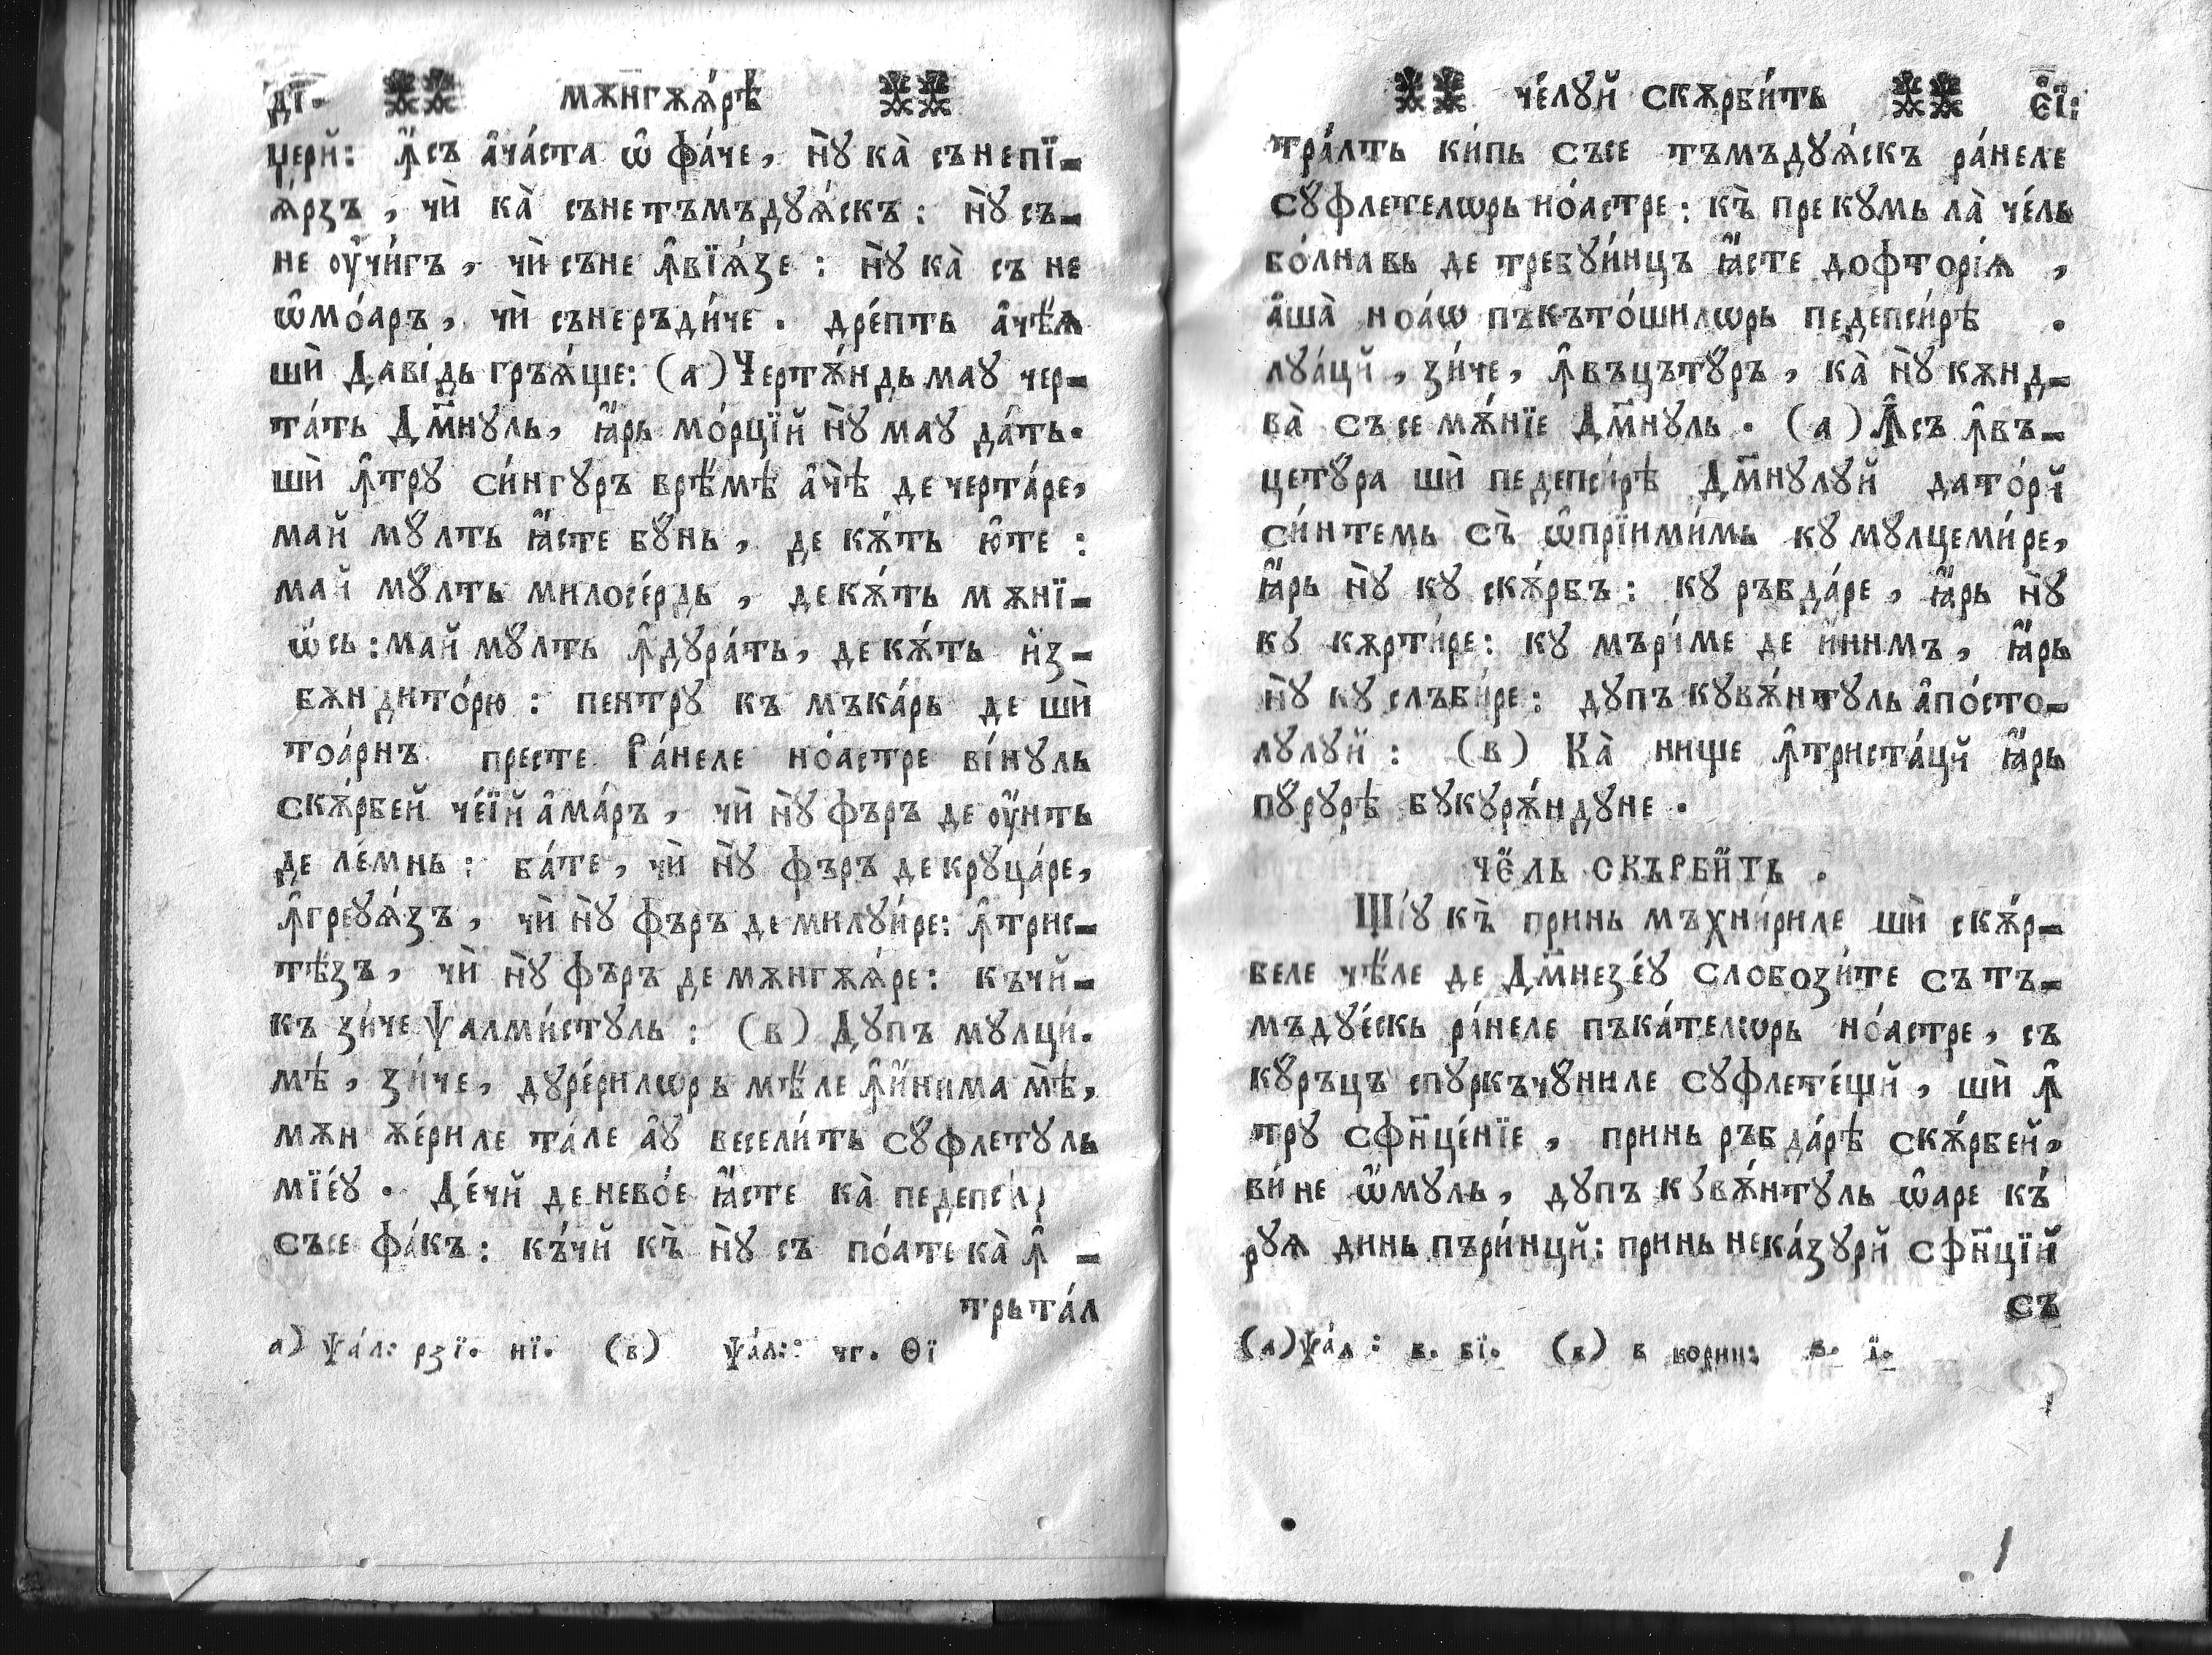 д҃і. мѫнгѫꙗ́рѣ
церй: ꙟ҆съ а҆ча́ста ѡ҆ фа́че, ну̀ ка̀ сънепї-
ꙗ́рзъ, чѝ ка̀ сънетъмъдуꙗ́скъ: ну̀ съ-
не оу҆чи́гъ, чѝ съне ꙟ҆вїꙗ́зе: ну̀ ка̀ съ не
ѡ҆мо́аръ, чѝ сънеръди́че. дре́пть а҆чѣ́ѧ
шѝ Даві́дь гръꙗ́ще: (а) Чертѫ́ндь мау чер-
та́ть Дм҃нуль, ꙗ҆́рь мо́рцїй ну̀ мау да́ть.
шѝ ꙟ҆тру си́нгуръ врѣ́мѣ а҆чѣ̀ де черта́ре,
май му́лть ꙗ҆́сте бу́нь, де кѫ́ть ю҆́те :
май му́лть милосе́рдь, декѫ́ть мѫнї-
ѡ́сь: май му́лть ꙟ҆дура́ть, декѫ́ть и҆з-
бѫндито́рю : пентру къ мъка́рь де шѝ
тоа́рнъ песте Ра́неле но́астре ві́нуль
скѫ́рбей че́їй а҆ма́ръ, чѝ ну̀ фъръ де оу҆́нть
де ле́мнь: ба́те, чѝ ну̀ фъръ де круца́ре,
ꙟ҆греуꙗ́зъ, чѝ ну̀ фъръ де милуи́ре: ꙟ҆трис-
тѣ́зъ, чѝ ну̀ фъръ де мѫнгѫꙗ́ре: къчй-
къ зи́че Ѱалми́стуль: (в) Дупъ мулци́.
мѣ́, зи́че, дуре́рилѡрь мѣ́ле ꙟ҆ и҆́нима мѣ̀,
мѫн гѫе́риле та́ле а҆у весели́ть су́флетуль
мїе́у. Де́чй де нево́е ꙗ҆́сте ка̀ педепсі́л
съсе фа́къ: къ́чй къ̀ ну̀ съ по́ате ка̀ ꙟ҆ -
трьта́л
а) Ѱа́л: рзї. нї. (в) Ѱа́л: чг. Ѳї
че́луй скѫрби́ть е҃ї:
тра́лть ки́пь съсе тъмъдуꙗ́скъ ра́неле
су́флетелѡрь но́астре: къ̀ прекумь ла̀ че́ль
бо́лнавь де требуи́нцъ ꙗ҆́сте дофторі́ѧ ,
а҆ша̀ ноа́ѡ пъкъто́шилѡрь педепси́рѣ .
луа́цй, зи́че, ꙟ҆въцъту́ръ, ка̀ ну̀ кѫнд-
ва̀ съсе мѫ́нїе Дм҃нуль. (а) Ꙟ҆съ ꙟ҆въ-
цету́ра шѝ педепси́рѣ Дм҃нулуй дато́рй
си́нтемь съ̀ ѡ҆прїими́мь ку мулцеми́ре,
ꙗ҆́рь ну̀ ку скѫ́рбъ: ку ръбда́ре, ꙗ҆́рь ну̀
ку кѫрти́ре: ку мърі́ме де и҆́нимъ, ꙗ҆́рь
ну̀ ку слъби́ре: дупъ кувѫ́нтуль а҆по́сто-
лулуй: (в) Ка̀ нище ꙟ҆триста́цй ꙗ҆́рь
пу́рурѣ букурѫ́ндуне.
че́ль скърби́ть .
Щі́у къ̀ принь мъхни́риле шѝ скѫ́р-
беле чѣ́ле де Дм҃незе́у слобози́те съ тъ-
мъдуе́скь ра́неле пъка́телѡрь но́астре, съ
ку́ръцъ спуркъчу́ниле суфлете́щй, шѝ ꙟ҆
тру сфн҃це́нїе, принь ръбда́рѣ скѫ́рбей,
ви́не ѡ҆́муль, дупъ кувѫ́нтуль ѡ҆аре къ́
руѧ динь пъри́нцй: принь нека́зурй сфн҃цїй
съ
(а) Ѱа́л : в. ві. (в) в корин: в. ї.